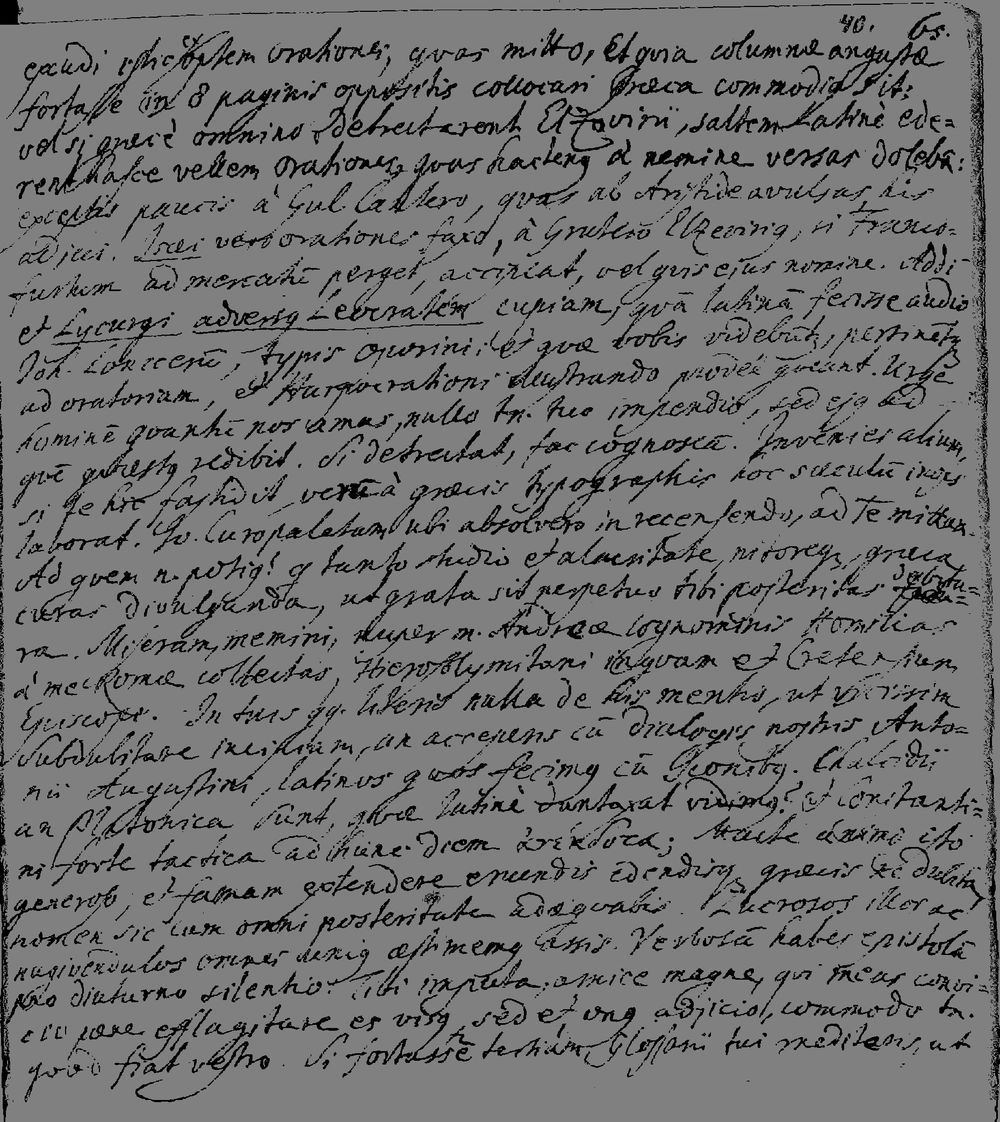 40. 65.
excudi orationes, quas mitto, Et quia columnæ angustæ
fortasse in 8 paginis oppositis collocari Græca commodiq sit:
vel si græcè omnino detrectarent Elzovirii, saltem Latinè ede=
rent hasce vellem orationes, quas hacteng à nemine versas doleba:
exceptis paucis à Gul. Cantero, quas ab Aristide avulsas his
adjici. Isæi verò orationes faxo, à Grutero Elzevirig, si Franco=
furtum ad mercatū perget, accipiat, vel quis ejus nomine. Addi
et Lycurgi adversq Leocratem cupiam, quā latinā fecisse audio
Joh. Loniceru, typis Oporini; et quæ vobis videbūt, pertinētq
ad oratoriam, et Harpocrationi illustrando queant. Urgē
hominē quantū nos amas, nullo tn. tuo impendio, sed ejq ad
quē quæstq redibit. Si detrectat, fac cognoscā. Invenies alium,
si Te hic fastidit, verū à græcis typographis hoc sæculū inops
laborat. Jo. Curopalatam ubi absolvero in recensendo, ad Te mittam.
Ad quem n. potiq? q tanto studio et alacritate, nitoreq, græca
curas divulganda, ut grata sit perpetuo tibi posteritas
ra. Miseram, memini, nuper m. Andreæ cognominis Homilias
à me Romæ collectas, Hierosolymitani inquam et Cretensium
Episcopi. In tuis qq. literis nulla de his mentio, ut vicissim
subdubitare incipiam, an acceperis cū dialogis nostris Anto=
nii Augustini, latinos quos fecimq cū Chalcidii
an Platonica sunt, quæ latinè duntaxat vidimq? et Constanti=
ni forte tactica ad hunc diem ἀνέκδοτα; Macte animi isto
generoso, et famam extendere eruendis edendisq græcis ne dubita
nomen sic cum omni posteritate adæquabis. Lucrosos illos ac
nugivendulos omnes uniq æstimemq assis. Verbosā habes epistolā
pro diuturno silentio. Tibi imputa, amice magne, qui meas convi=
cio pæne efflagitare es visq, sed et unq adjicio, commodo tn.
quod fiat vestro. Si fortasse tertium, Glossarii tui meditans, ut